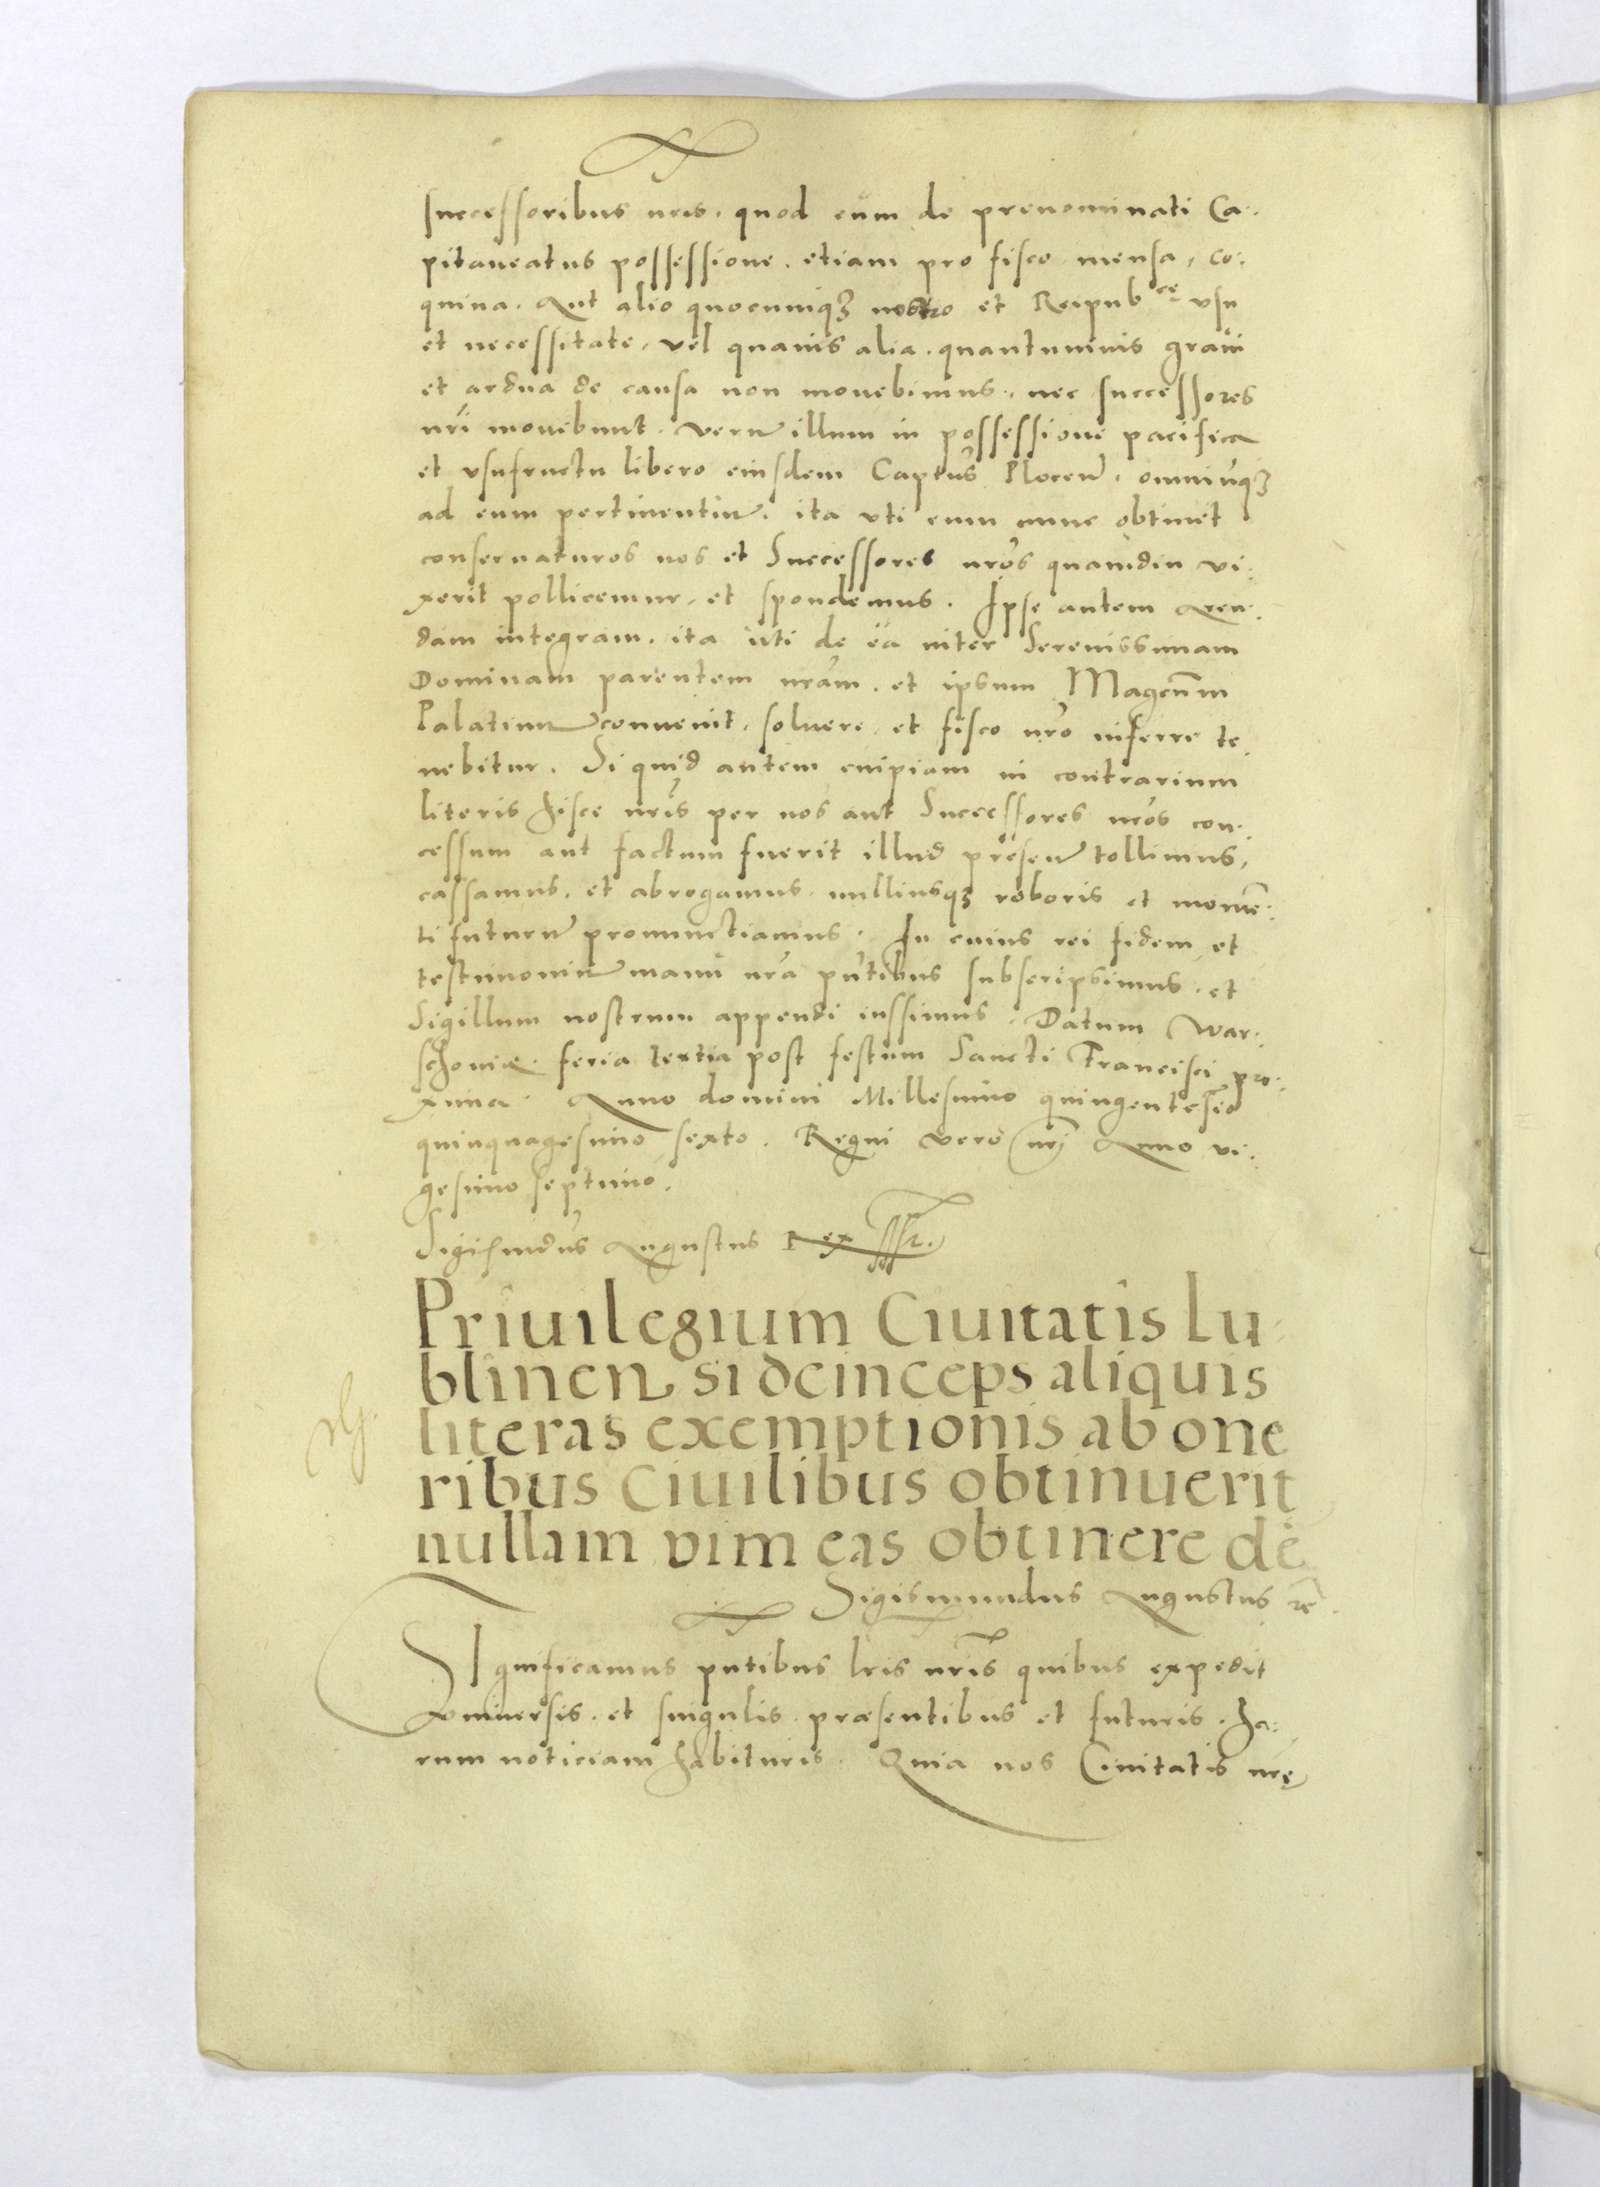 successoribus nris. quod eum de prenominati Ca-
pitaneatus possessione. etiam pro fisco mensa, co-
quina. Aut alio quocumq3 nostro et Reipub cę vsu
et necessitate, vel quauis alia. quantumuis graui
et ardua de causa non mouebimus, nec successores
nri mouebunt. Veru illum in possessione pacifica
et vsufructu libero eiusdem Captus Plocen. omniuq3
ad eum pertinentiu. ita vti eum nunc obtinet
conseruaturos nos et Successores nros quamdiu vi-
xerit pollicemur, et spondemus. Ipse autem Aren-
dam integram. ita uti de ea inter Serenissimam
Dominam parentem nram. et ipsum Magcum
Palatinu conuenit, soluere, et fisco nro inferre te-
nebitur. Si quid autem cuipiam in contrarium
literis hisce nris per nos aut Successores nros con-
cessum aut factum fuerit illud presen tollimus,
cassamus. et abrogamus. nulliusq3 roboris et momē-
ti futuru pronunctiamus. In cuius rei fidem et
testimoniu manu nra pntibus subscripsimus. et
Sigillum nostrum appendi iussimus. Datum War-
schouiæ. feria tertia post festum Sancti Francisci pro-
xima. Anno domini Millesimo quingentesio
quinquagesimo sexto. Regni vero nri Anno vi-
gesimo septimo.
Sigismudus Augustus Rex
Priuilegium Ciuitatis Lu-
blinen si deinceps aliquis
literas exemptionis ab one
ribus Ciuilibus obtinuerit
nullam vim eas obtinere dē
Sigismundus Augustus re
SIgnificamus pntibus lris nris quibus expedit
vniuersis. et singulis. præsentibus et futuris. ha-
rum noticiam habituris. Quia nos Ciuitatis nrę